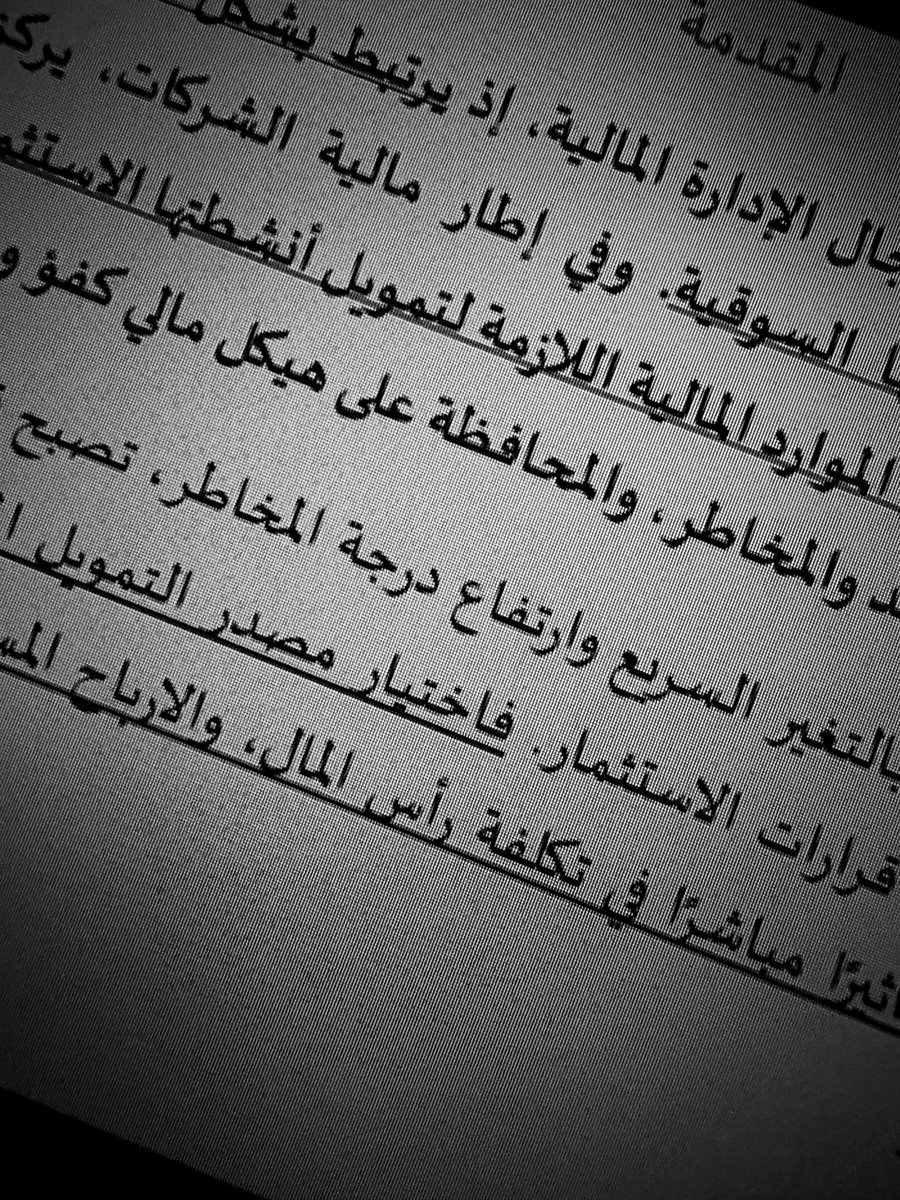 المقدمة
الإدارة المالية، إذ يرتبط بشكل
السوقية. وفي إطار مالية الشركات، يركز
الموارد المالية اللازمة لتمويل أنشطتها
والمخاطر، والمحافظة على هيكل مالي كفؤ
بالتغير السريع وارتفاع درجة المخاطر، تصبح
قرارات الاستثمار. فاختيار مصدر التمويل
مباشرًا في تكلفة رأس المال، والارباح